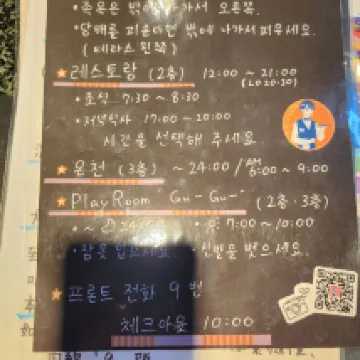 · 족욕은 밖에 나가서 오른쪽.
· 담배를 피운다면 밖에 나가서 피우세요.
(테라스 왼쪽)
★ 레스토랑 (2층) 12:00 ~ 21:00
(LO 20:30)
· 조식 7:30 ~ 8:30
· 저녁식사 17:00 ~ 20:00
시간을 선택해 주세요.
★ 온천 (3층) ~ 24:00 / 6:00 ~ 9:00
★ Play Room "Gu-Gu-" (2층·3층)
7:00 ~ 10:00
· 잠옷 입으세요. 신발을 벗으세요.
★ 프론트 전화 9번
체크아웃 10:00